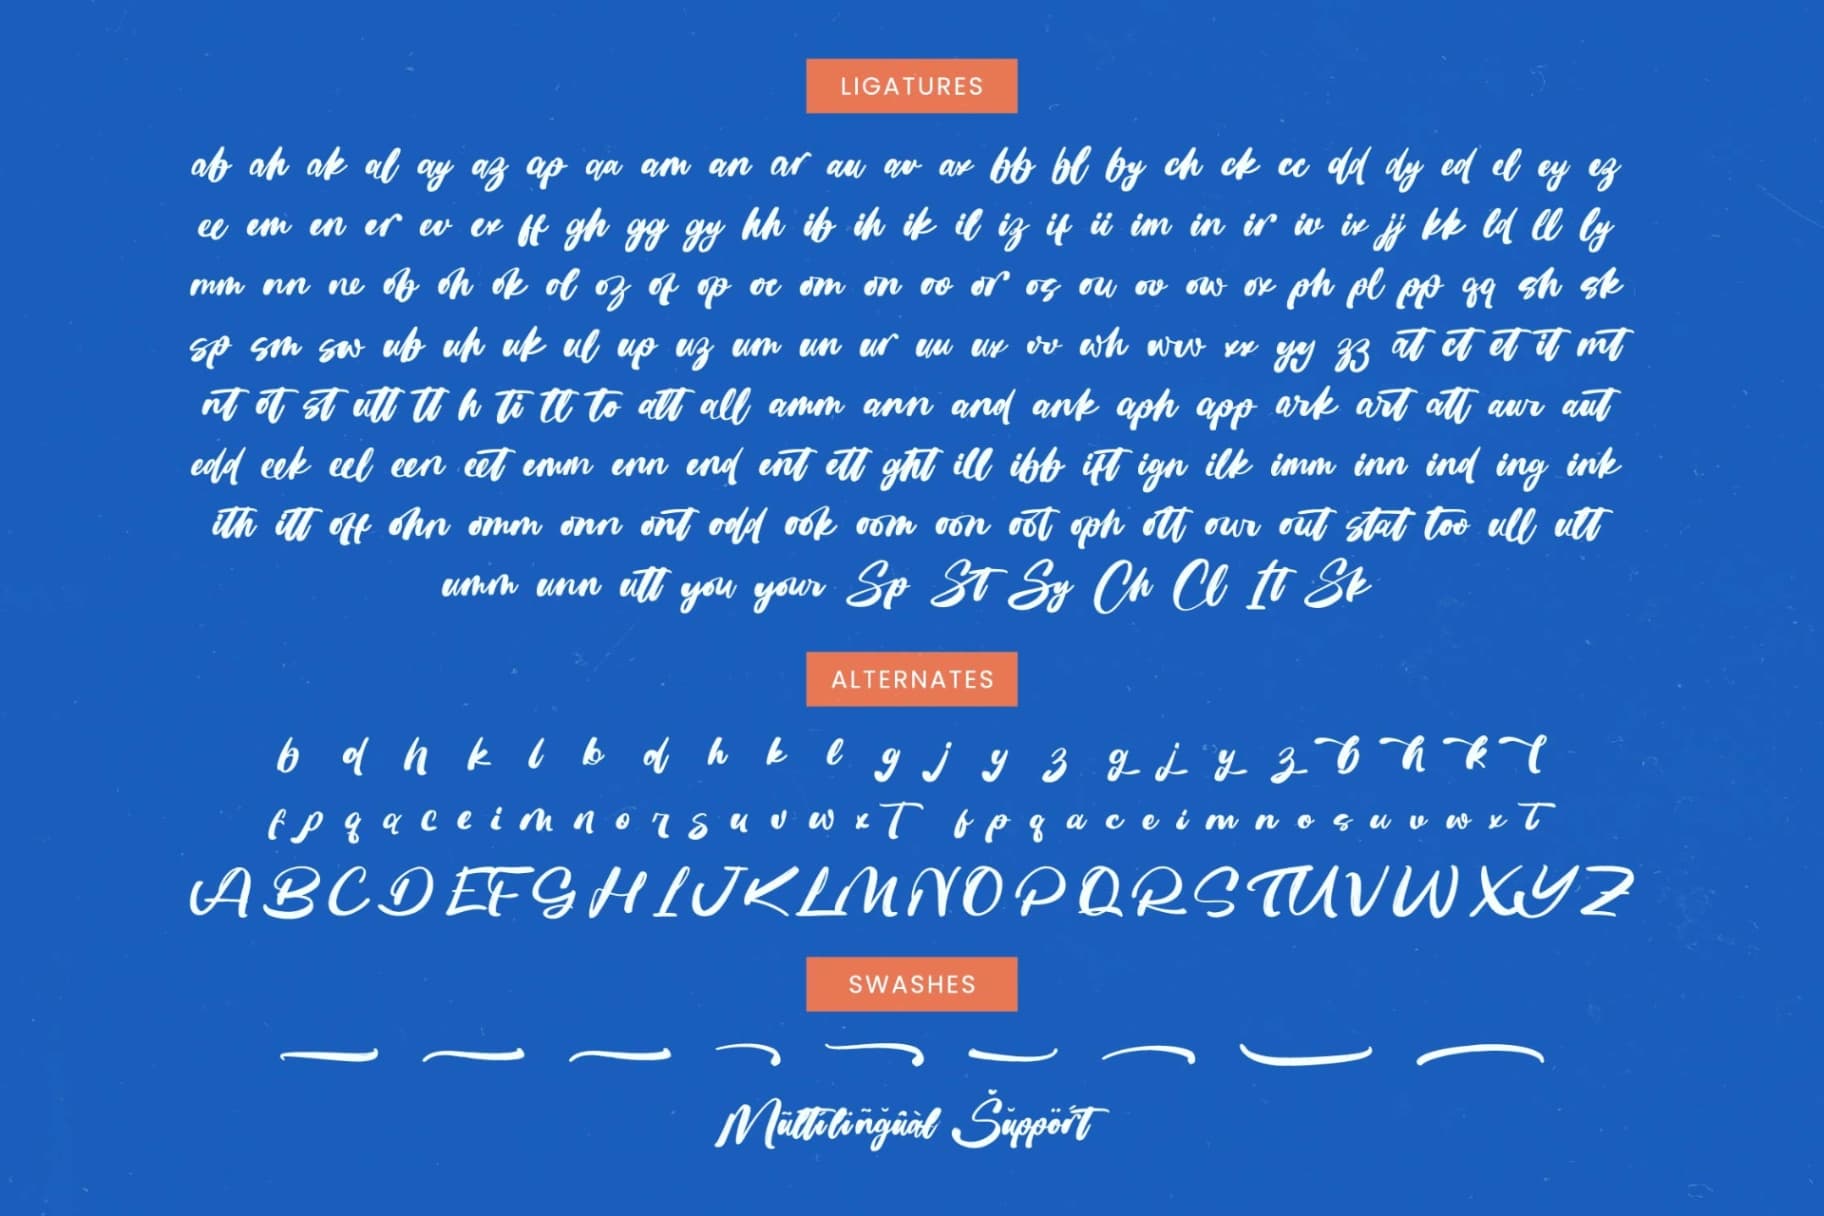 LIGATURES
ab ah ak al ay az ap aa am an ar au av ax bb bl by ch ck cc dd dy ed el ey ez
ee em en er ev ex ff gh gg gy hh ib ih ik il iz if ii im in ir iv ix jj kk ld ll ly
mm nn ne ob oh ok ol oz of op oc om on oo or os ou ov ow ox ph pl pp qq sh sk
sp sm sw ub uh uk ul up uz um un ur uu ux vv wh ww xx yy zz at ct et it mt
nt ot st utt tt h ti tl to att all amm ann and ank aph app ark art att awr aut
edd eek eel een eet emm enn end ent ett ght ill ibb ift ign ilk imm inn ind ing ink
ith itt off ohn omm onn ont odd ook oom oon oot oph ott our out stat too ull ult
umm unn utt you your Sp St Sy Ch Cl It Sk
ALTERNATES
b d h k l b d h k l g j y z g j y z b h k l
f p q a c e i m n o r s u v w x T f p q a c e i m n o s u v w x T
A B C D E F G H I J K L M N O P Q R S T U V W X Y Z
SWASHES
Mũltĭlĭñğûàl Šŭppörť